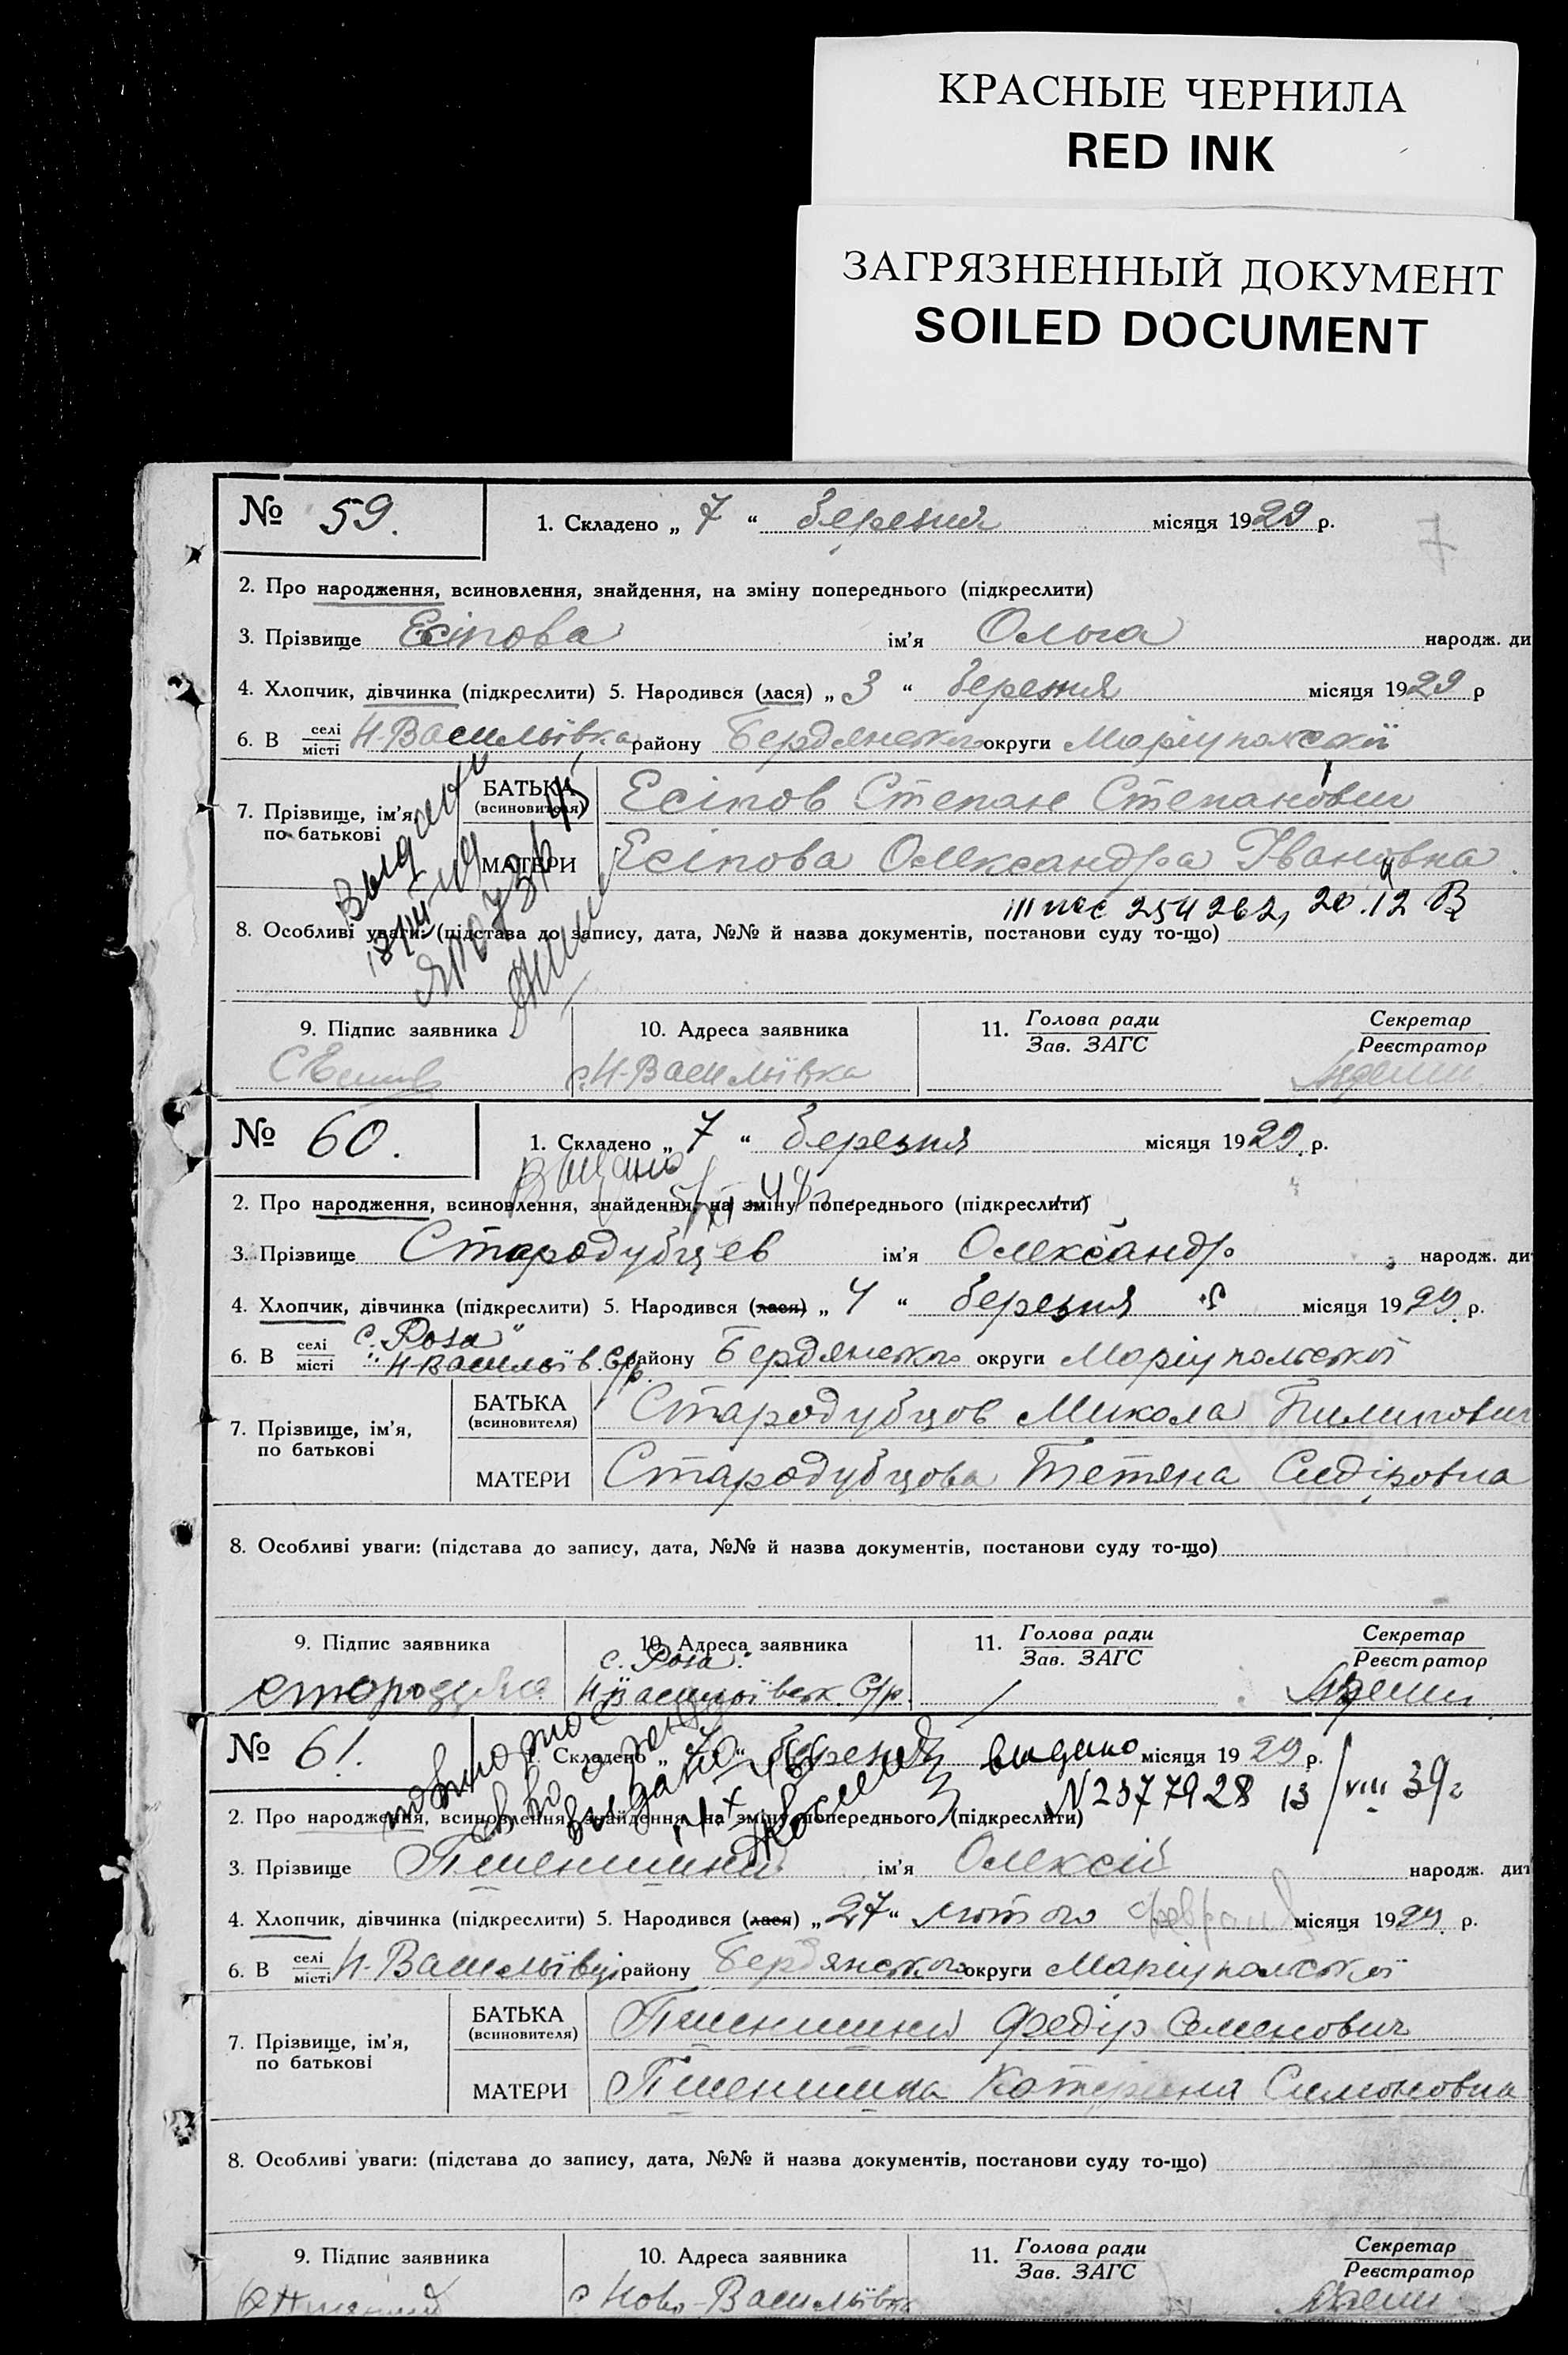 КРАСНЫЕ ЧЕРНИЛА
RED INK
ЗАГРЯЗНЕННЫЙ ДОКУМЕНТ
SOILED DOCUMENT
№ 59.
1. Складено „ 7 “ березня місяця 1929 р.
7
2. Про народження, всиновлення, знайдення, на зміну попереднього (підкреслити)
3. Прізвище Есіпова ім'я Ольга народж. ди
4. Хлопчик, дівчинка (підкреслити) 5. Народився (лася) „ 3 “ березня місяця 1929 р
6. В селі місті Н-Васильївка району Бердянського округи Маріупольскої
7. Прізвище, ім'я, по батькові
БАТЬКА (всиновителя) Есіпов Степан Степанович
МАТЕРИ Есіпова Олександра Івановна
254262, 20.12
8. Особливі уваги: (підстава до запису, дата, №№ й назва документів, постанови суду то-що)
9. Підпис заявника 10. Адреса заявника 11. Голова ради Зав. ЗАГС Секретар Реєстратор
с. Н-Васильївка
№ 60.
1. Складено „ 7 “ березня місяця 1929. р.
2. Про народження, всиновлення, знайдення, на зміну попереднього (підкреслити)
3. Прізвище Стародубцев ім'я Олександр народж. ди
4. Хлопчик, дівчинка (підкреслити) 5. Народився (лася) „ 4 “ березня місяця 1929. р.
с. „Роза“
6. В селі місті Н-Васильїв. С/р. району Бердянського округи Маріупольської
7. Прізвище, ім'я, по батькові
БАТЬКА (всиновителя) Стародубцов Микола Пилипович
МАТЕРИ Стародубцова Тетяна Сидіровна
8. Особливі уваги: (підстава до запису, дата, №№ й назва документів, постанови суду то-що)
9. Підпис заявника 10. Адреса заявника 11. Голова ради Зав. ЗАГС Секретар Реєстратор
с. „Роза“
Н-Васильївськ. С/р.
№ 61.
1. Складено „ 7 “ березня видано місяця 1929 р.
N2377928 13/VIII 39г
2. Про народження, всиновлення, знайдення, на зміну попереднього (підкреслити)
3. Прізвище Пшенишний ім'я Олексій народж. дит
4. Хлопчик, дівчинка (підкреслити) 5. Народився (лася) „ 27 “ лютого місяця 1929. р.
6. В селі місті Н-Васильївці району Бердянського округи Маріупольської
7. Прізвище, ім'я, по батькові
БАТЬКА (всиновителя) Пшенишний Федір Семенович
МАТЕРИ Пшенишна Катерина Симоновна
8. Особливі уваги: (підстава до запису, дата, №№ й назва документів, постанови суду то-що)
9. Підпис заявника 10. Адреса заявника 11. Голова ради Зав. ЗАГС Секретар Реєстратор
с Ново-Васильївка